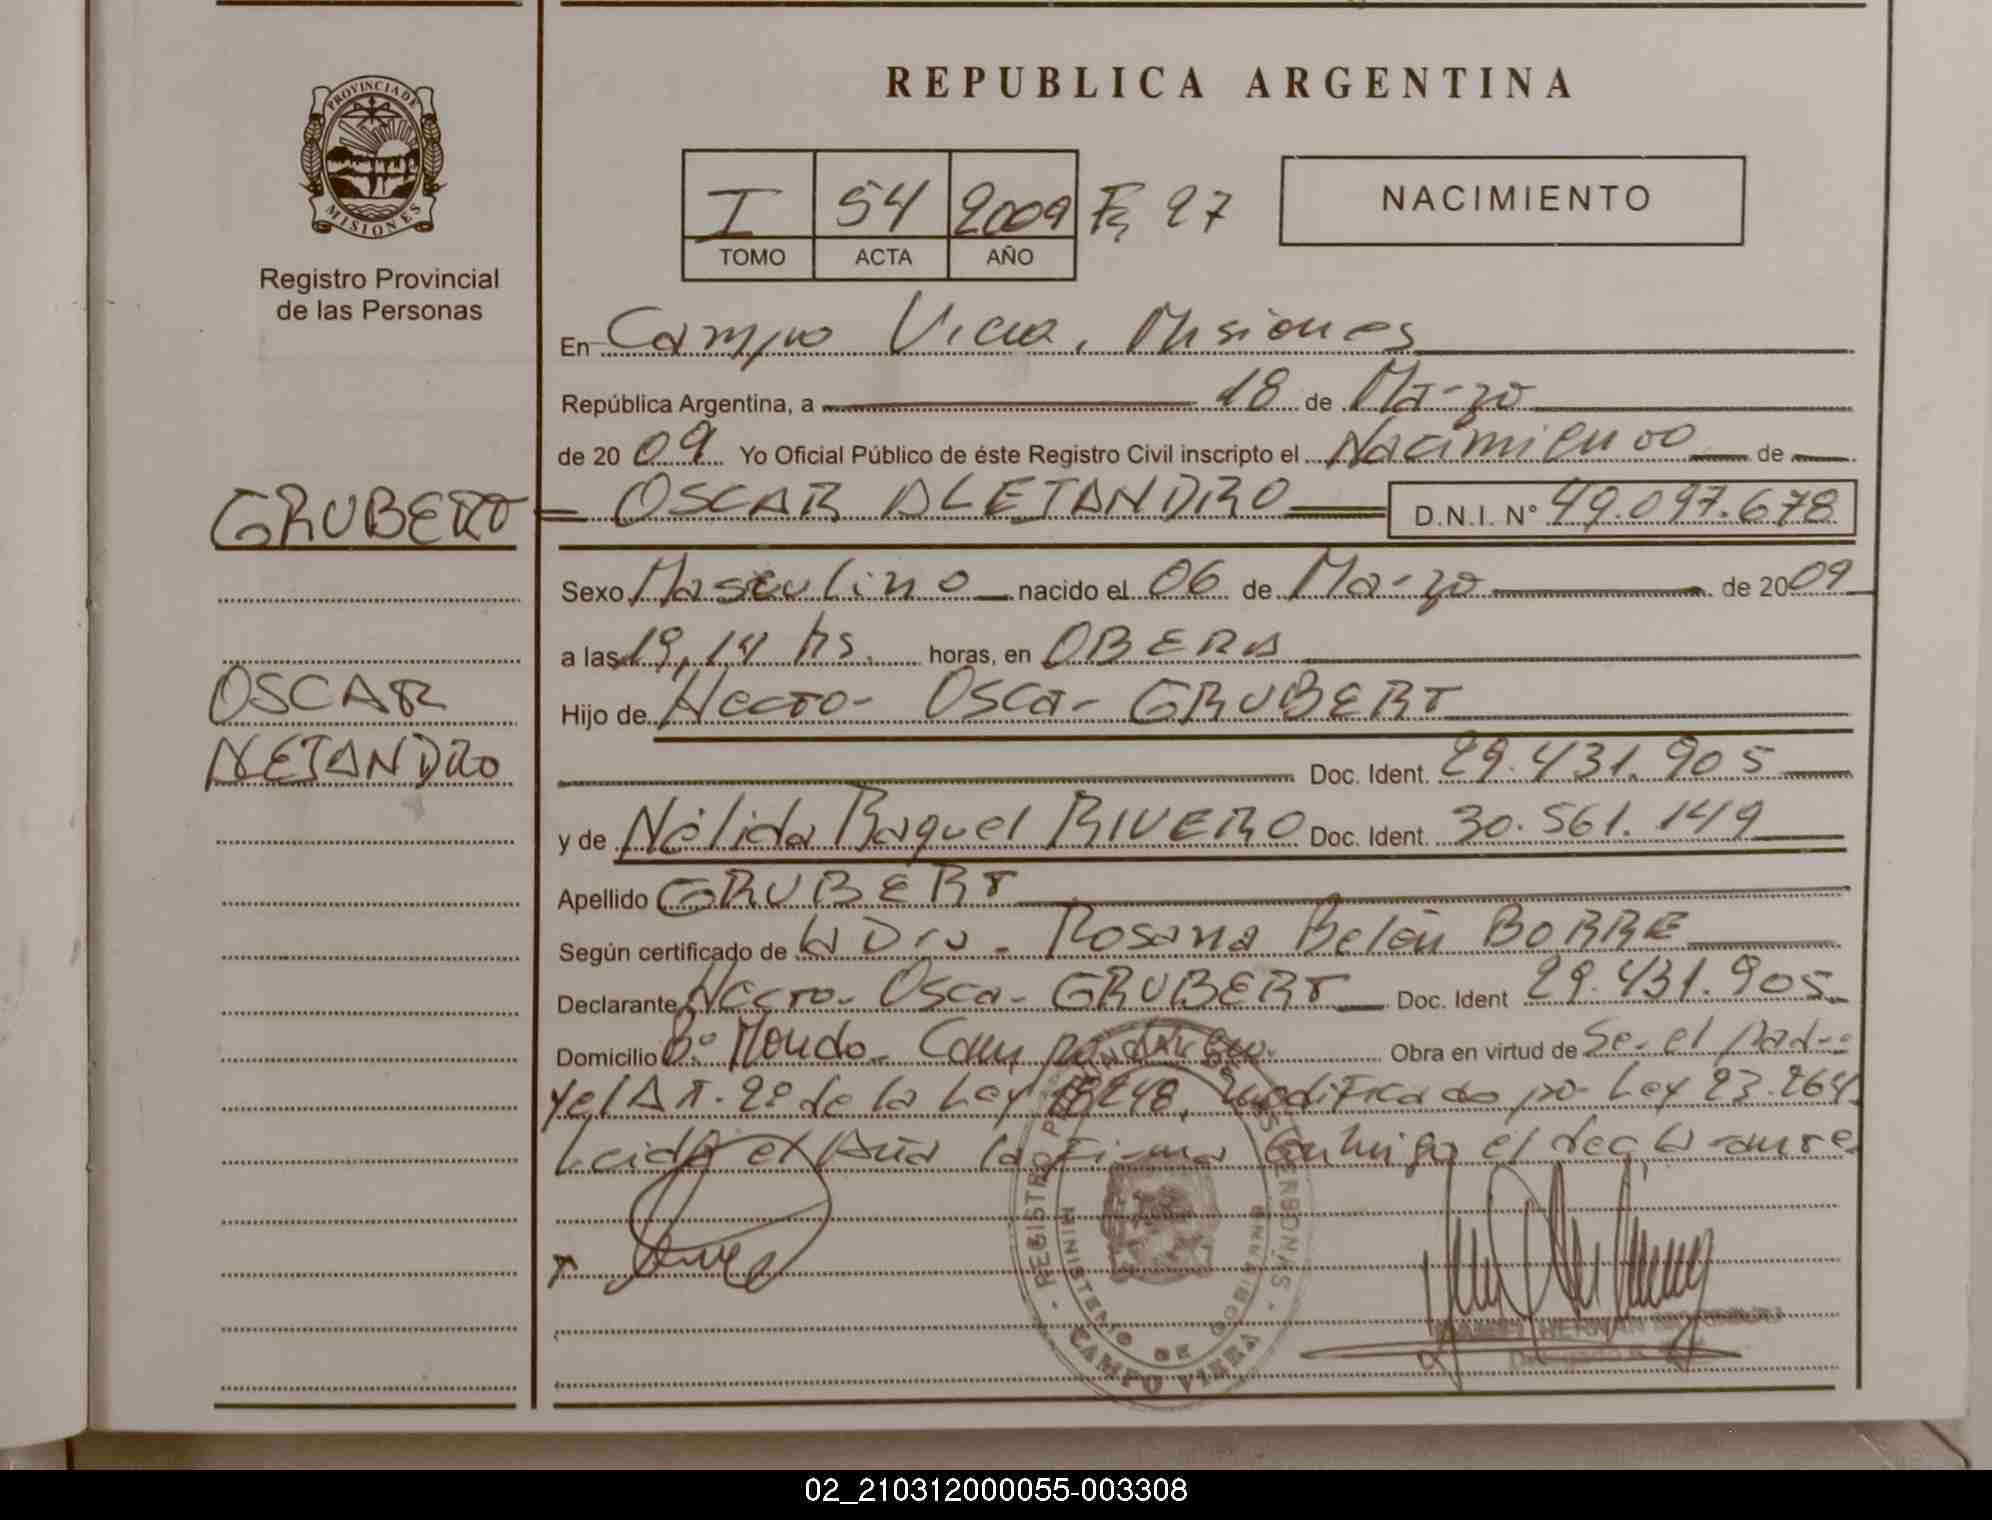 PROVINCIA DE
MISIONES
Registro Provincial
de las Personas
REPUBLICA ARGENTINA
I 54 2009 Fº 27
TOMO ACTA AÑO
NACIMIENTO
En Campo Viera, Misiones
República Argentina, a 18 de Marzo
de 20 09 Yo Oficial Público de éste Registro Civil inscripto el Nacimiento de
GRUBERT OSCAR ALEJANDRO D.N.I. N° 49.097.678
Sexo Masculino nacido el 06 de Marzo de 2009
a las 19,14 hs. horas, en OBERA
OSCAR
ALEJANDRO
Hijo de Hector Oscar GRUBERT
Doc. Ident. 29.431.905
y de Nélida Raquel RIVERO Doc. Ident. 30.561.149
Apellido GRUBERT
Según certificado de la Dra. Rosana Belén BORRE
Declarante Hector Oscar GRUBERT Doc. Ident 29.431.905
Domicilio Bº Mondo- Obra en virtud de Ser el padre
y el Art. 2º de la Ley 18248, modificado por Ley 23.264.
Leida el Acta la firma conmigo el declarante
REGISTRO PROVINCIAL DE LAS PERSONAS
MINISTERIO DE GOBIERNO
CAMPO VIERA
02_210312000055-003308